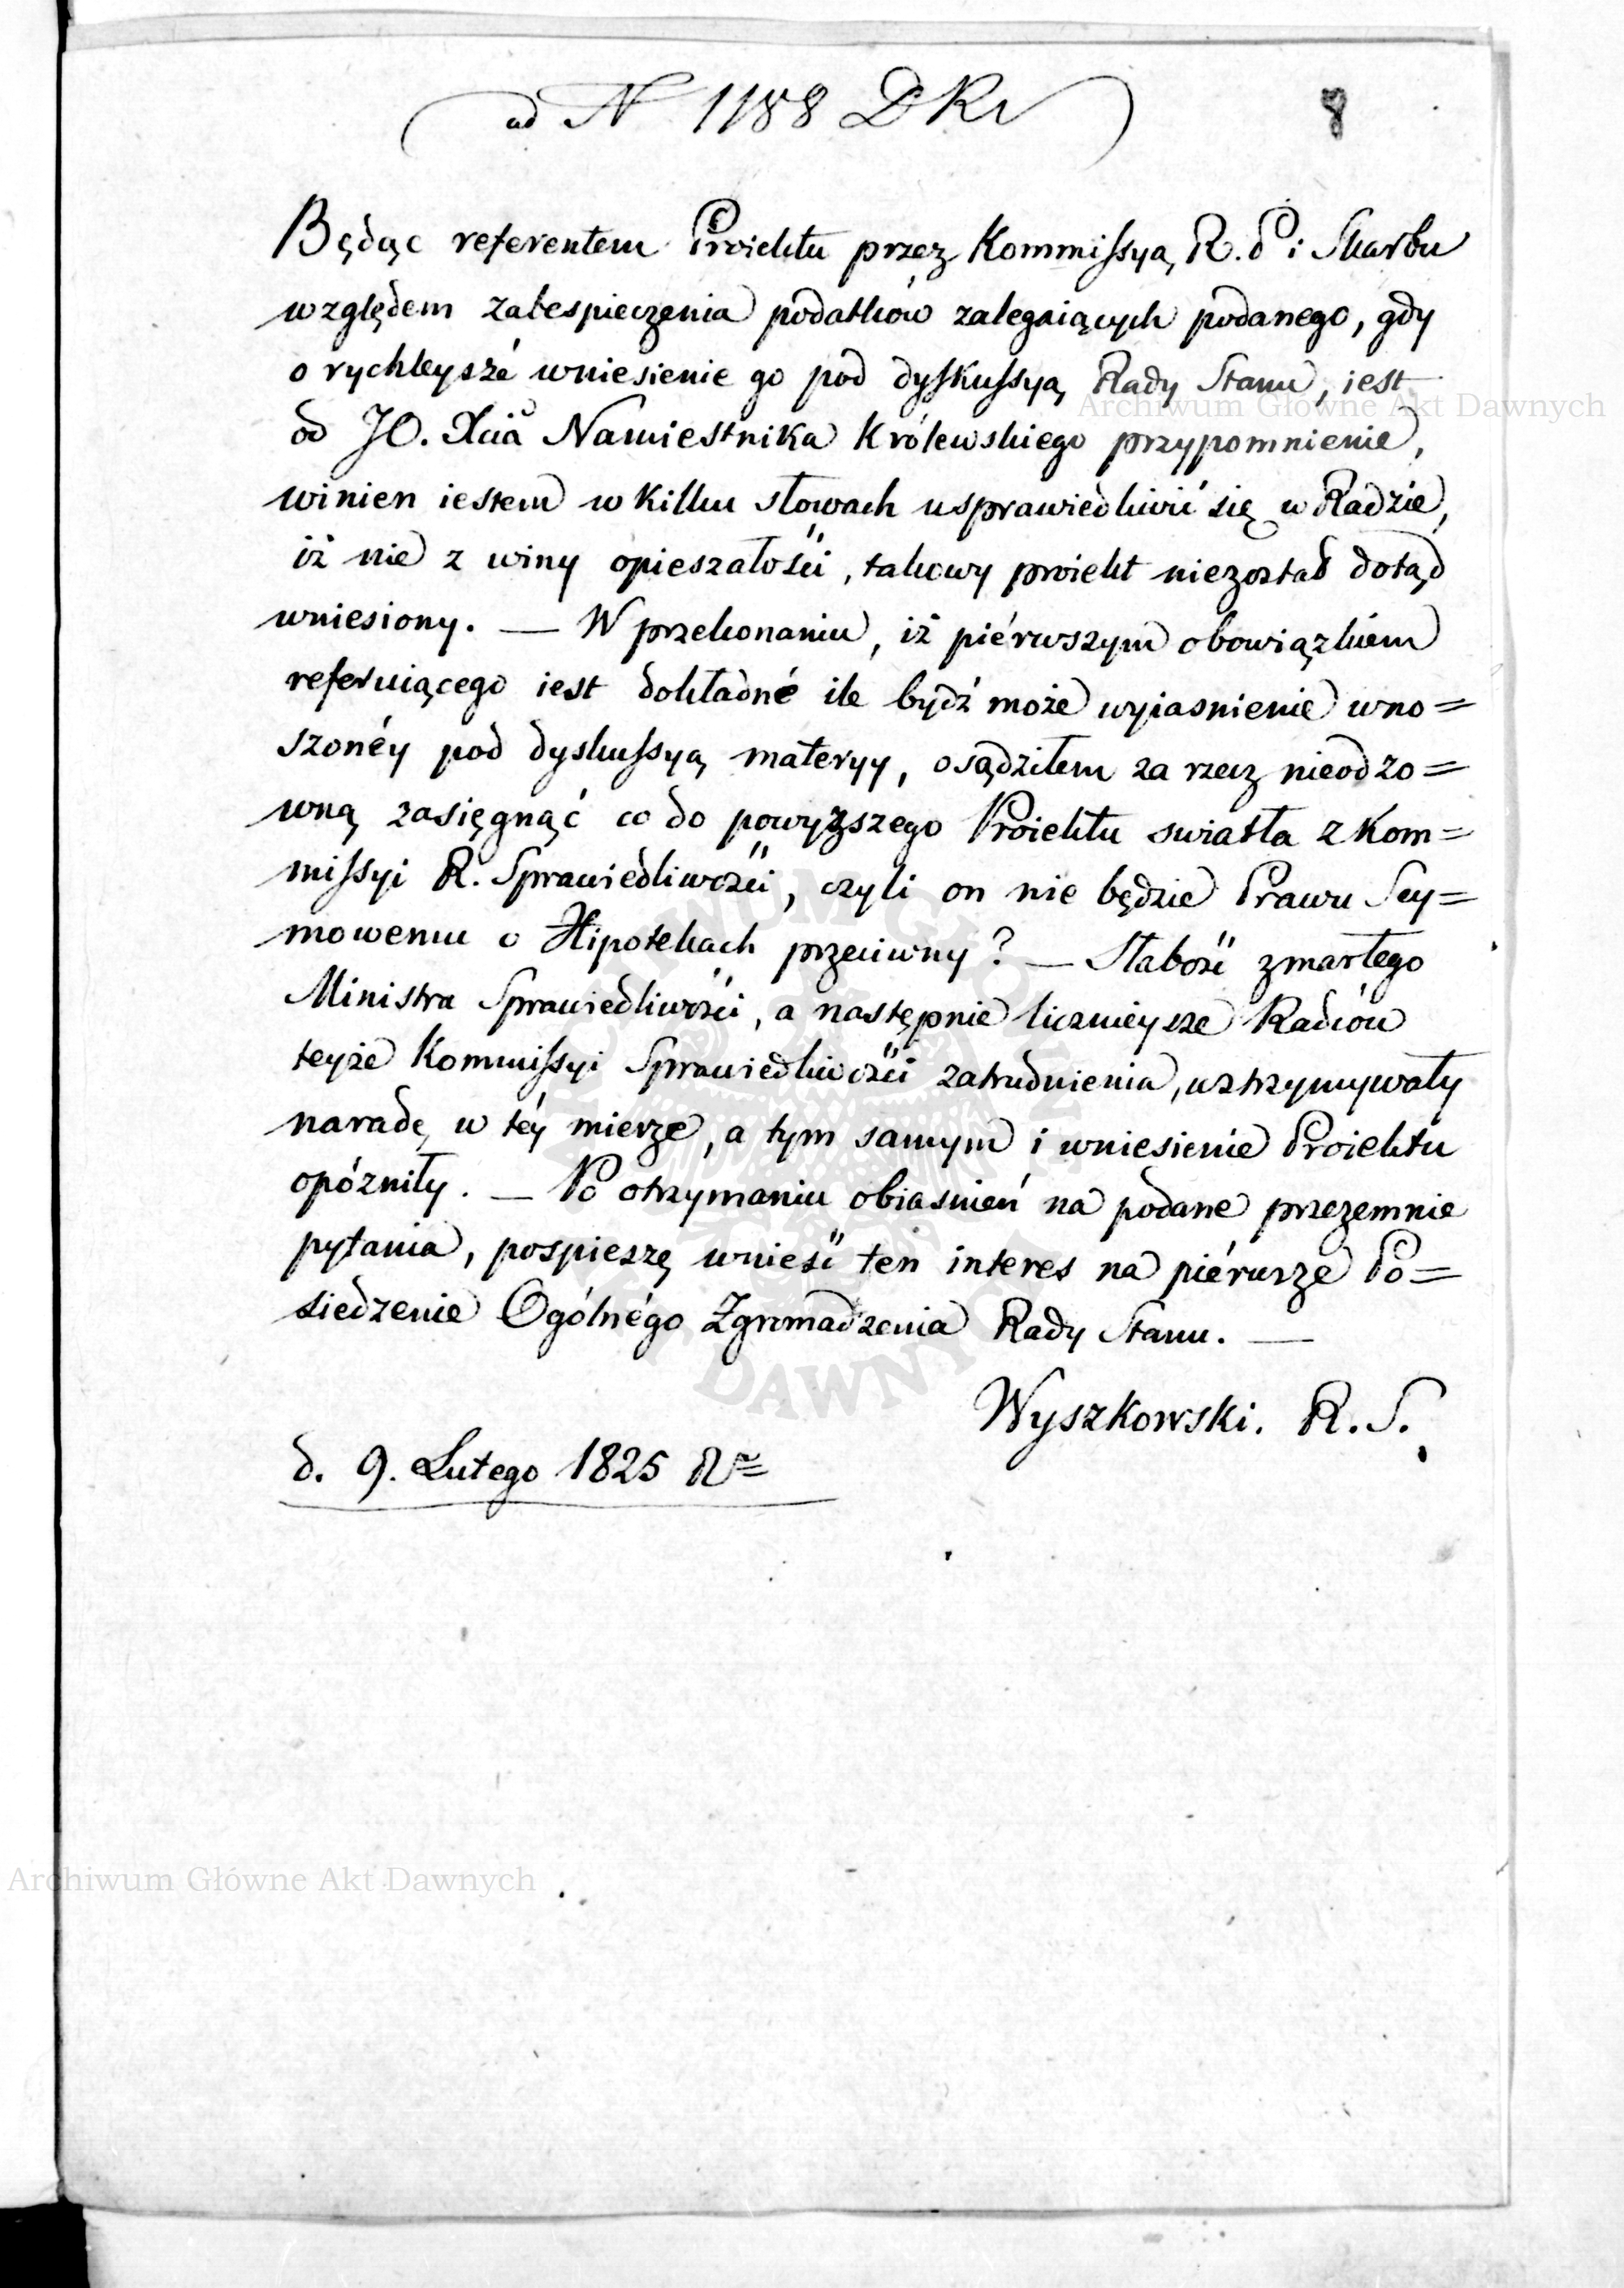 ad N 1188 DRS
8
Będąc referentem Proiektu przez Kommissyą R. P i Skarbu
względem zabespieczenia podatków zalegaiących podanego, gdy
o rychleysze wniesienie go pod dyskussyą Rady Stanu, iest
od JO. Xcia Namiestnika Królewskiego przypomnienie,
winien iestem w kilku słowach usprawiedliwić się w Radzie,
iż nie z winy opieszałości, takowy proiekt niezostał dotąd
wniesiony. — W przekonaniu, iż piérwszym obowiązkiem
referuiącego iest dokładné ile bydź może wyiasnienie wno=
szonéy pod dyskussyą materyy, osądziłem za rzecz nieodzo=
wną zasięgnąć co do powyższego Proiektu swiatła z Kom=
missyi R. Sprawiedliwości, czyli on nie będzie Prawu Sey=
mowemu o Hipotekach przeciwny? — Słabość zmarłego
Ministra Sprawiedliwości, a następnie licznieysze Radców
teyże Kommissyi Sprawiedliwości zatrudnienia, wstrzymywały
naradę w téy mierze, a tym samym i wniesienie Proiektu
opózniły. — Po otrzymaniu obiasnień na podane przezemnie
pytania, pospieszę wnieść ten interes na piérwsze Po=
siedzenie Ogólnégo Zgromadzenia Rady Stanu. —
Wyszkowski. R. S.
d. 9. Lutego 1825 R=
Archiwum Główne Akt Dawnych
Archiwum Główne Akt Dawnych